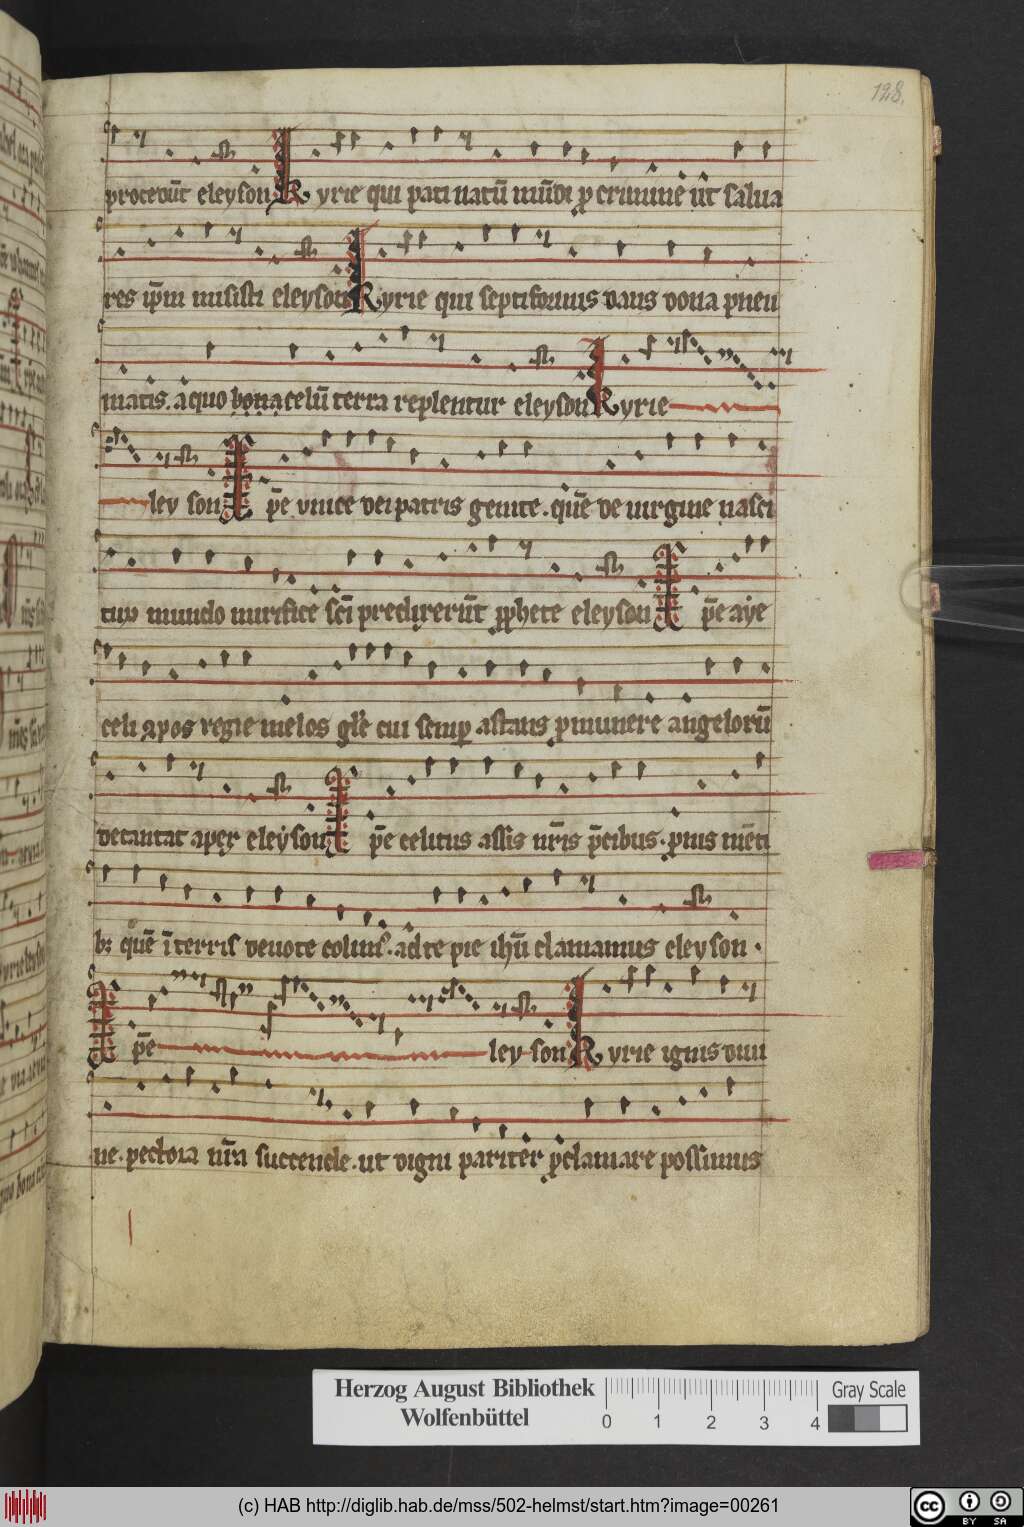 128.
procedūt eleyson Kyrie qui pati natū mūdi p crimine ut salua
res ip̄m misisti eleyson Kyrie qui septiformis dans dona pneu
matis. a quo bona celū terra replentur eleyson Kyrie
ley son Xp̄e unice dei patris genite. quē de uirgine nasci
turū mundo mirifice sc̄i predixerūt pphete eleyson Xp̄e aẏe
celi apos regie melos gl̄e cui semp astans p munere angelorū
decantat apex eleyson Xp̄e celitus assis nr̄is p̄cibus. pius mēti
bꝫ quē ī terris deuote colim⁹. ad te pie ihū clamamus eleyson .
Xp̄e ley son Kyrie ignis diui
ne. pectora nr̄a succende. ut digni pariter pclamare possimus
Herzog August Bibliothek
Wolfenbüttel
0 1 2 3 4
Gray Scale
(c) HAB http://diglib.hab.de/mss/502-helmst/start.htm?image=00261
cc BY SA